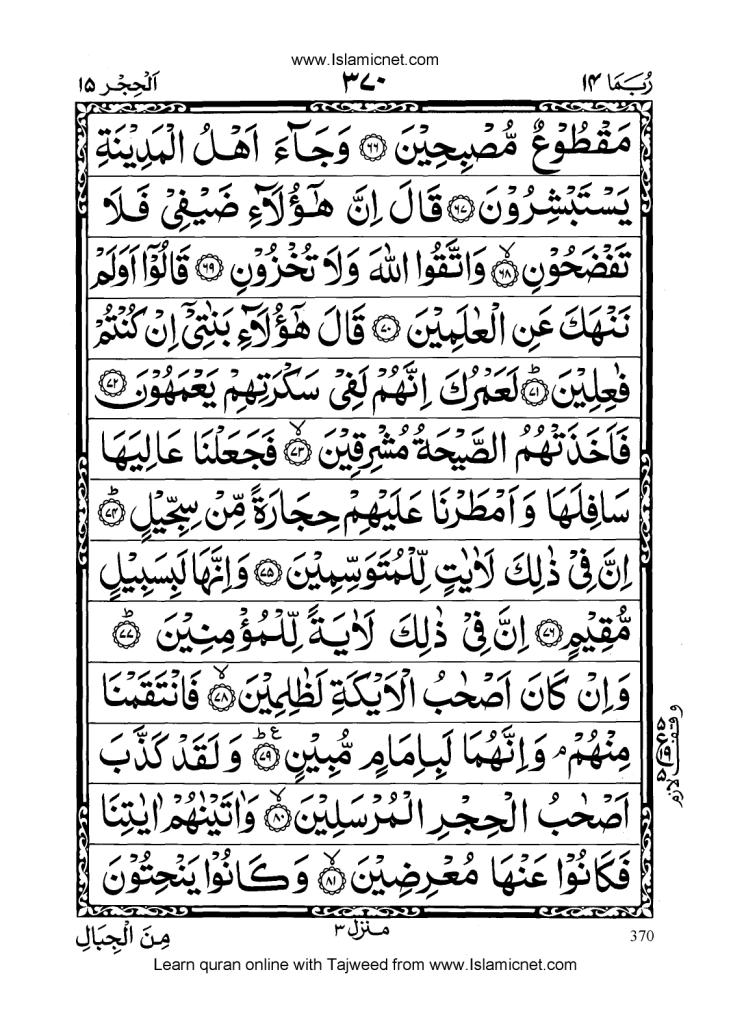 www.Islamicnet.com
رُبَمَا ١٤
٣٧٠
اَلْحِجْر ١٥
مَقْطُوْعٌ مُّصْبِحِيْنَ ﴿٦٦﴾ وَجَآءَ اَهْلُ الْمَدِيْنَةِ
يَسْتَبْشِرُوْنَ ﴿٦٧﴾ قَالَ اِنَّ هٰٓؤُلَآءِ ضَيْفِيْ فَلَا
تَفْضَحُوْنِ ﴿٦٨﴾ۙ وَاتَّقُوا اللّٰهَ وَلَا تُخْزُوْنِ ﴿٦٩﴾ قَالُوْٓا اَوَلَمْ
نَنْهَكَ عَنِ الْعٰلَمِيْنَ ﴿٧٠﴾ قَالَ هٰٓؤُلَآءِ بَنٰتِيْٓ اِنْ كُنْتُمْ
فٰعِلِيْنَ ﴿٧١﴾ؕ لَعَمْرُكَ اِنَّهُمْ لَفِيْ سَكْرَتِهِمْ يَعْمَهُوْنَ ﴿٧٢﴾
فَاَخَذَتْهُمُ الصَّيْحَةُ مُشْرِقِيْنَ ﴿٧٣﴾ۙ فَجَعَلْنَا عَالِيَهَا
سَافِلَهَا وَاَمْطَرْنَا عَلَيْهِمْ حِجَارَةً مِّنْ سِجِّيْلٍ ﴿٧٤﴾ؕ
اِنَّ فِيْ ذٰلِكَ لَاٰيٰتٍ لِّلْمُتَوَسِّمِيْنَ ﴿٧٥﴾ وَاِنَّهَا لَبِسَبِيْلٍ
مُّقِيْمٍ ﴿٧٦﴾ اِنَّ فِيْ ذٰلِكَ لَاٰيَةً لِّلْمُؤْمِنِيْنَ ﴿٧٧﴾ؕ
وَاِنْ كَانَ اَصْحٰبُ الْاَيْكَةِ لَظٰلِمِيْنَ ﴿٧٨﴾ۙ فَانْتَقَمْنَا
مِنْهُمْ ۘ وَاِنَّهُمَا لَبِاِمَامٍ مُّبِيْنٍ ﴿٧٩﴾ؕ ع وَلَقَدْ كَذَّبَ
اَصْحٰبُ الْحِجْرِ الْمُرْسَلِيْنَ ﴿٨٠﴾ۙ وَاٰتَيْنٰهُمْ اٰيٰتِنَا
فَكَانُوْا عَنْهَا مُعْرِضِيْنَ ﴿٨١﴾ۙ وَكَانُوْا يَنْحِتُوْنَ
370
منزل ٣
مِنَ الْجِبَالِ
Learn quran online with Tajweed from www.Islamicnet.com